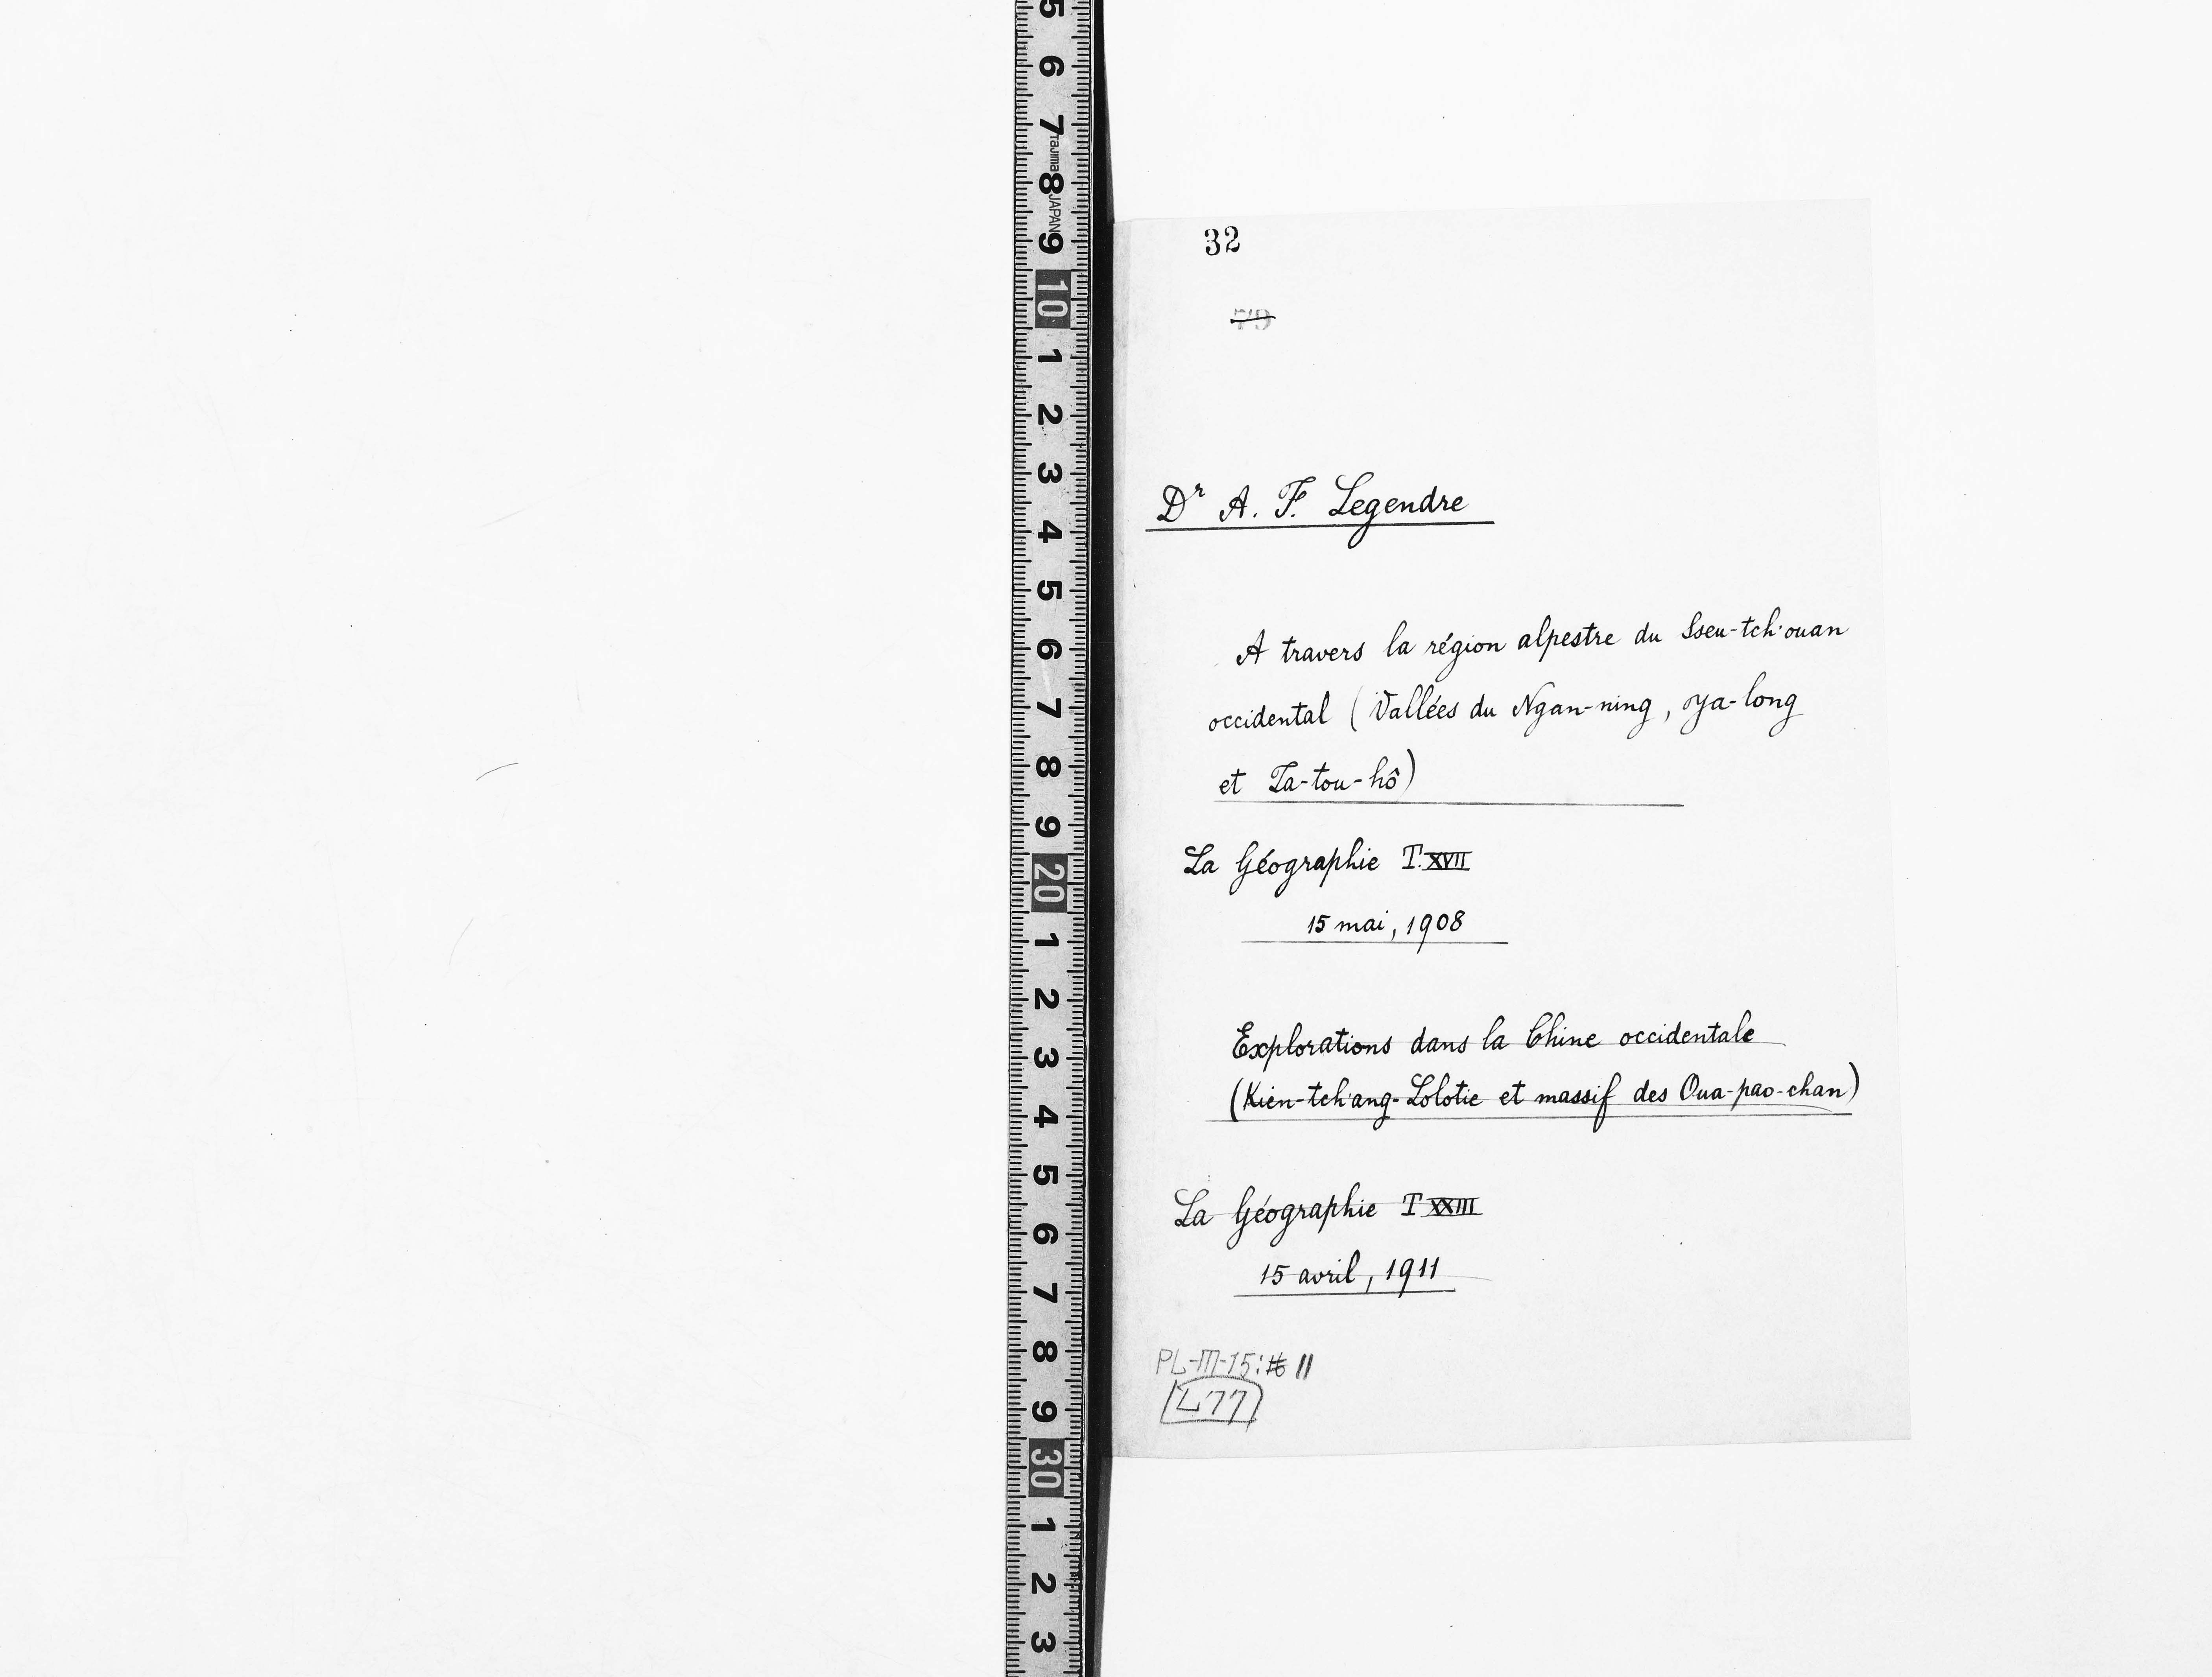 5
6
7
Tajima
8
JAPAN
9
10
1
2
3
4
5
6
7
8
9
20
1
2
3
4
5
6
7
8
9
30
1
2
3
32
79
Dr A. F. Legendre
A travers la région alpestre du Sseu-tch'ouan
occidental (Vallées du Ngan-ning, Ya-long
et Ta-tou-hô)
La Géographie T. XVII
15 mai, 1908
Explorations dans la Chine occidentale
(Kien-tch'ang-Lolotie et massif des Oua-pao-chan)
La Géographie T XXIII
15 avril, 1911
PL-III-15: 11
L77